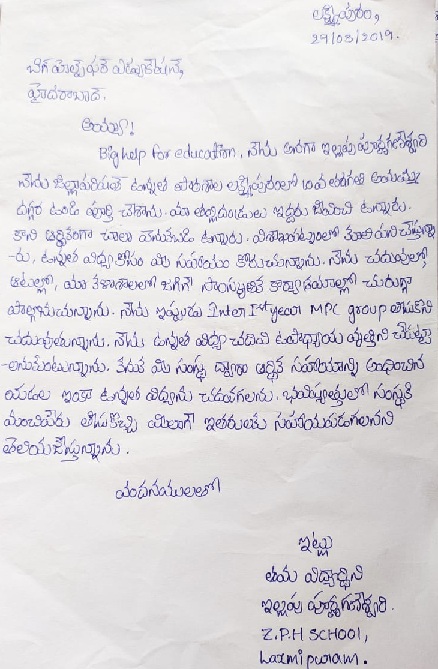 లక్ష్మీపురం,
29/03/2019.
బిగ్ హెల్ప్ ఫర్ ఎడ్యుకేషన్,
హైదరాబాద్.
అయ్యా!
Big help for education, నేను అనగా ఇల్లపు పూర్ణగణేశ్వరి
నేను జిల్లాపరిషత్ ఉన్నత పాఠశాల లక్ష్మీపురంలో 10వ తరగతి అమ్మమ్మ
దగ్గర ఉండి పూర్తి చేశాను. మా తల్లిదండ్రులు ఇద్దరు జీవించి ఉన్నారు.
కాని ఆర్థికంగా చాలా వెనుకబడి ఉన్నారు. విశాఖపట్నంలో కూలిపని చేస్తున్నా
-రు, ఉన్నత విద్య కోసం మీ సహాయం కోరుచున్నాను. నేను చదువులో,
ఆటల్లో, మా పాఠశాలలో జరిగే సాంస్కృతిక కార్యక్రమాల్లో చురుగ్గా
పాల్గొనుచున్నాను. నేను ఇప్పుడు Inter Ist year MPC group తీసుకుని
చదువుతున్నాను. నేను ఉన్నత విద్య చదివి ఉపాధ్యాయ వృత్తిని చేపట్టా
-అనుకుంటున్నాను. కనుక మీ సంస్థ ద్వారా ఆర్థిక సహాయాన్ని అందించిన
యెడల ఇంకా ఉన్నత విద్యను చదవగలను. భవిష్యత్తులో సంస్థకి
మంచిపేరు తీసుకొచ్చి మీలాగే ఇతరులకు సహాయపడగలనని
తెలియజేస్తున్నాను.
వందనములతో
ఇట్లు
తమ విద్యార్థిని
ఇల్లపు పూర్ణగణేశ్వరి.
Z.P.H SCHOOL,
Laxmipuram.